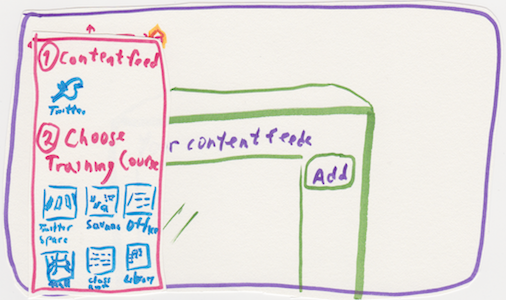 1 Content feed
Twitter
2 Choose
Training Course
Twitter
Space
Savana
Office
Class
Room
Library
r content feeds
Add